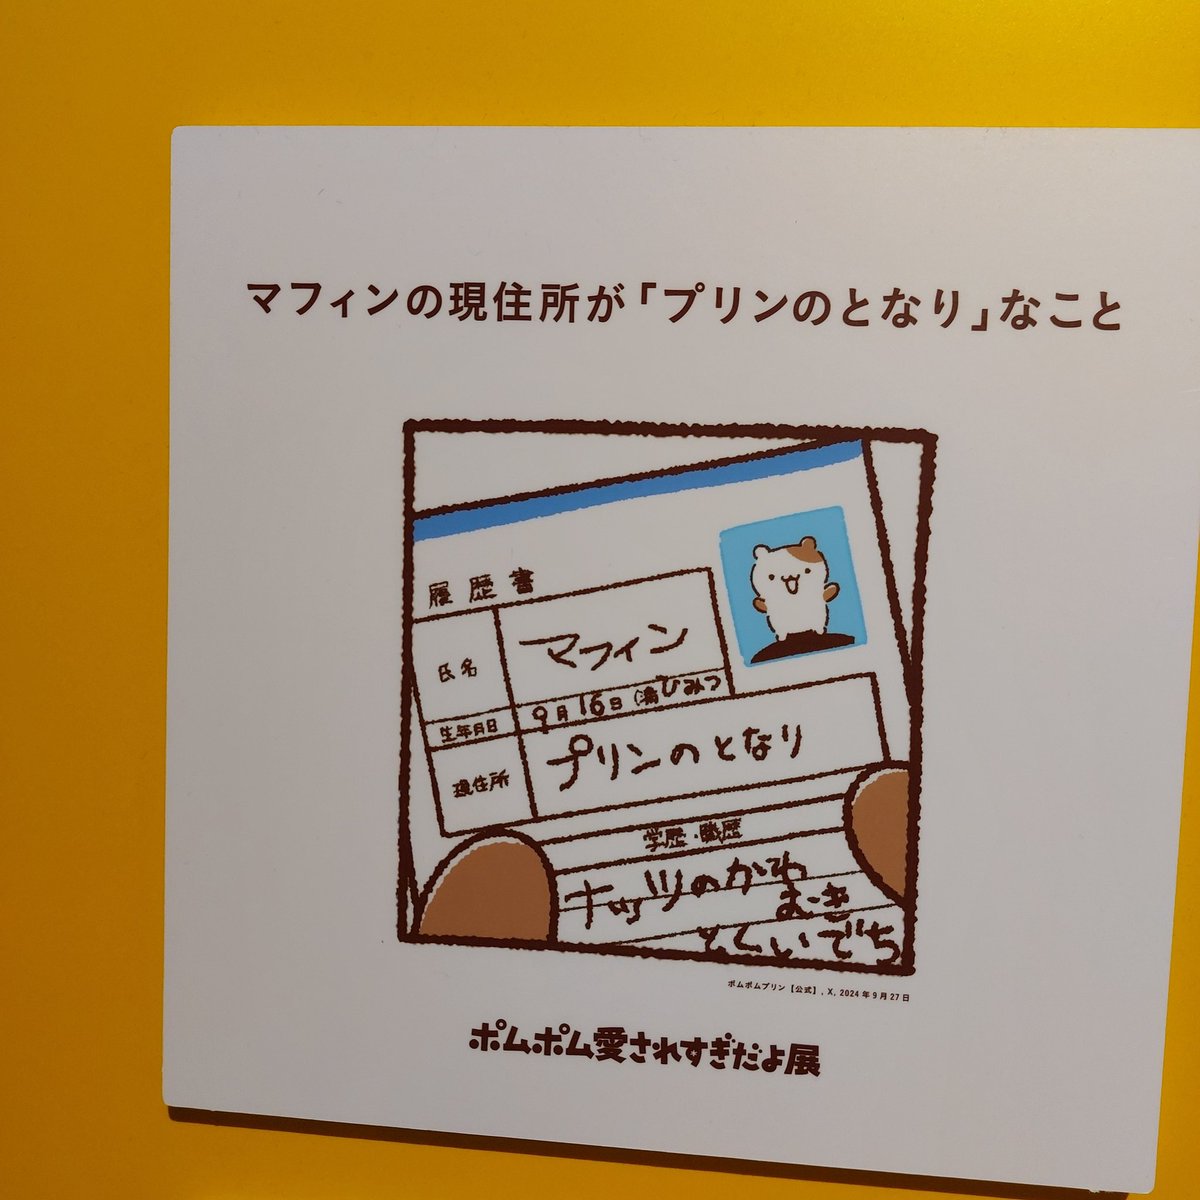 マフィンの現住所が「プリンのとなり」なこと
履歴書
氏名
マフィン
生年月日
9月16日(満ひみつ
現住所
プリンのとなり
学歴・職歴
ナッツのかわ
むき
とくいでち
ポムポムプリン【公式】, X, 2024年9月27日
ポムポム愛されすぎだよ展